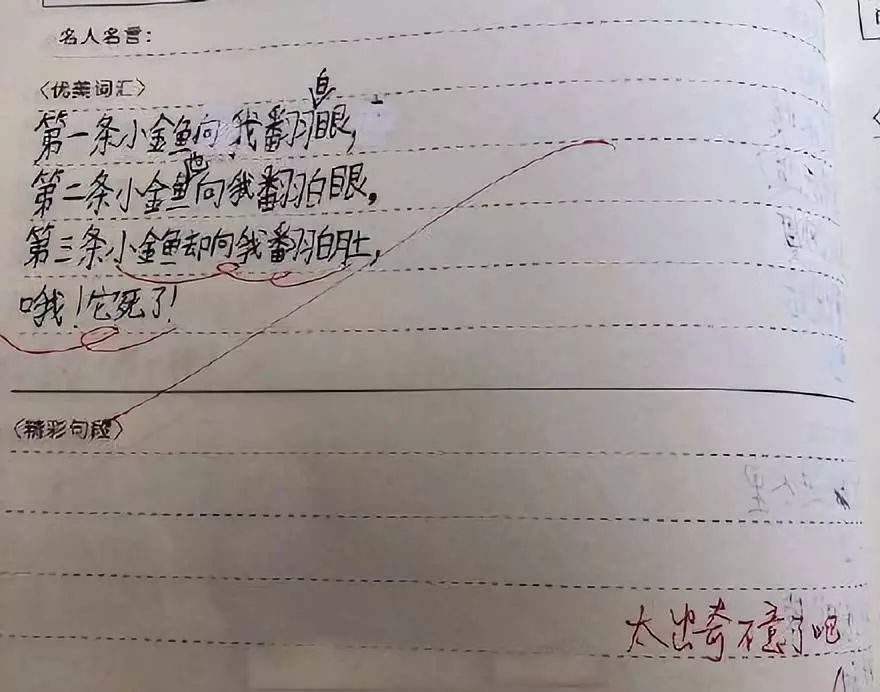 名人名言：
〈优美词汇〉
第一条小金鱼向我翻白眼，
第二条小金鱼也向我翻白眼，
第三条小金鱼却向我翻白肚，
哦！它死了！
〈精彩句段〉
太出奇不意了吧